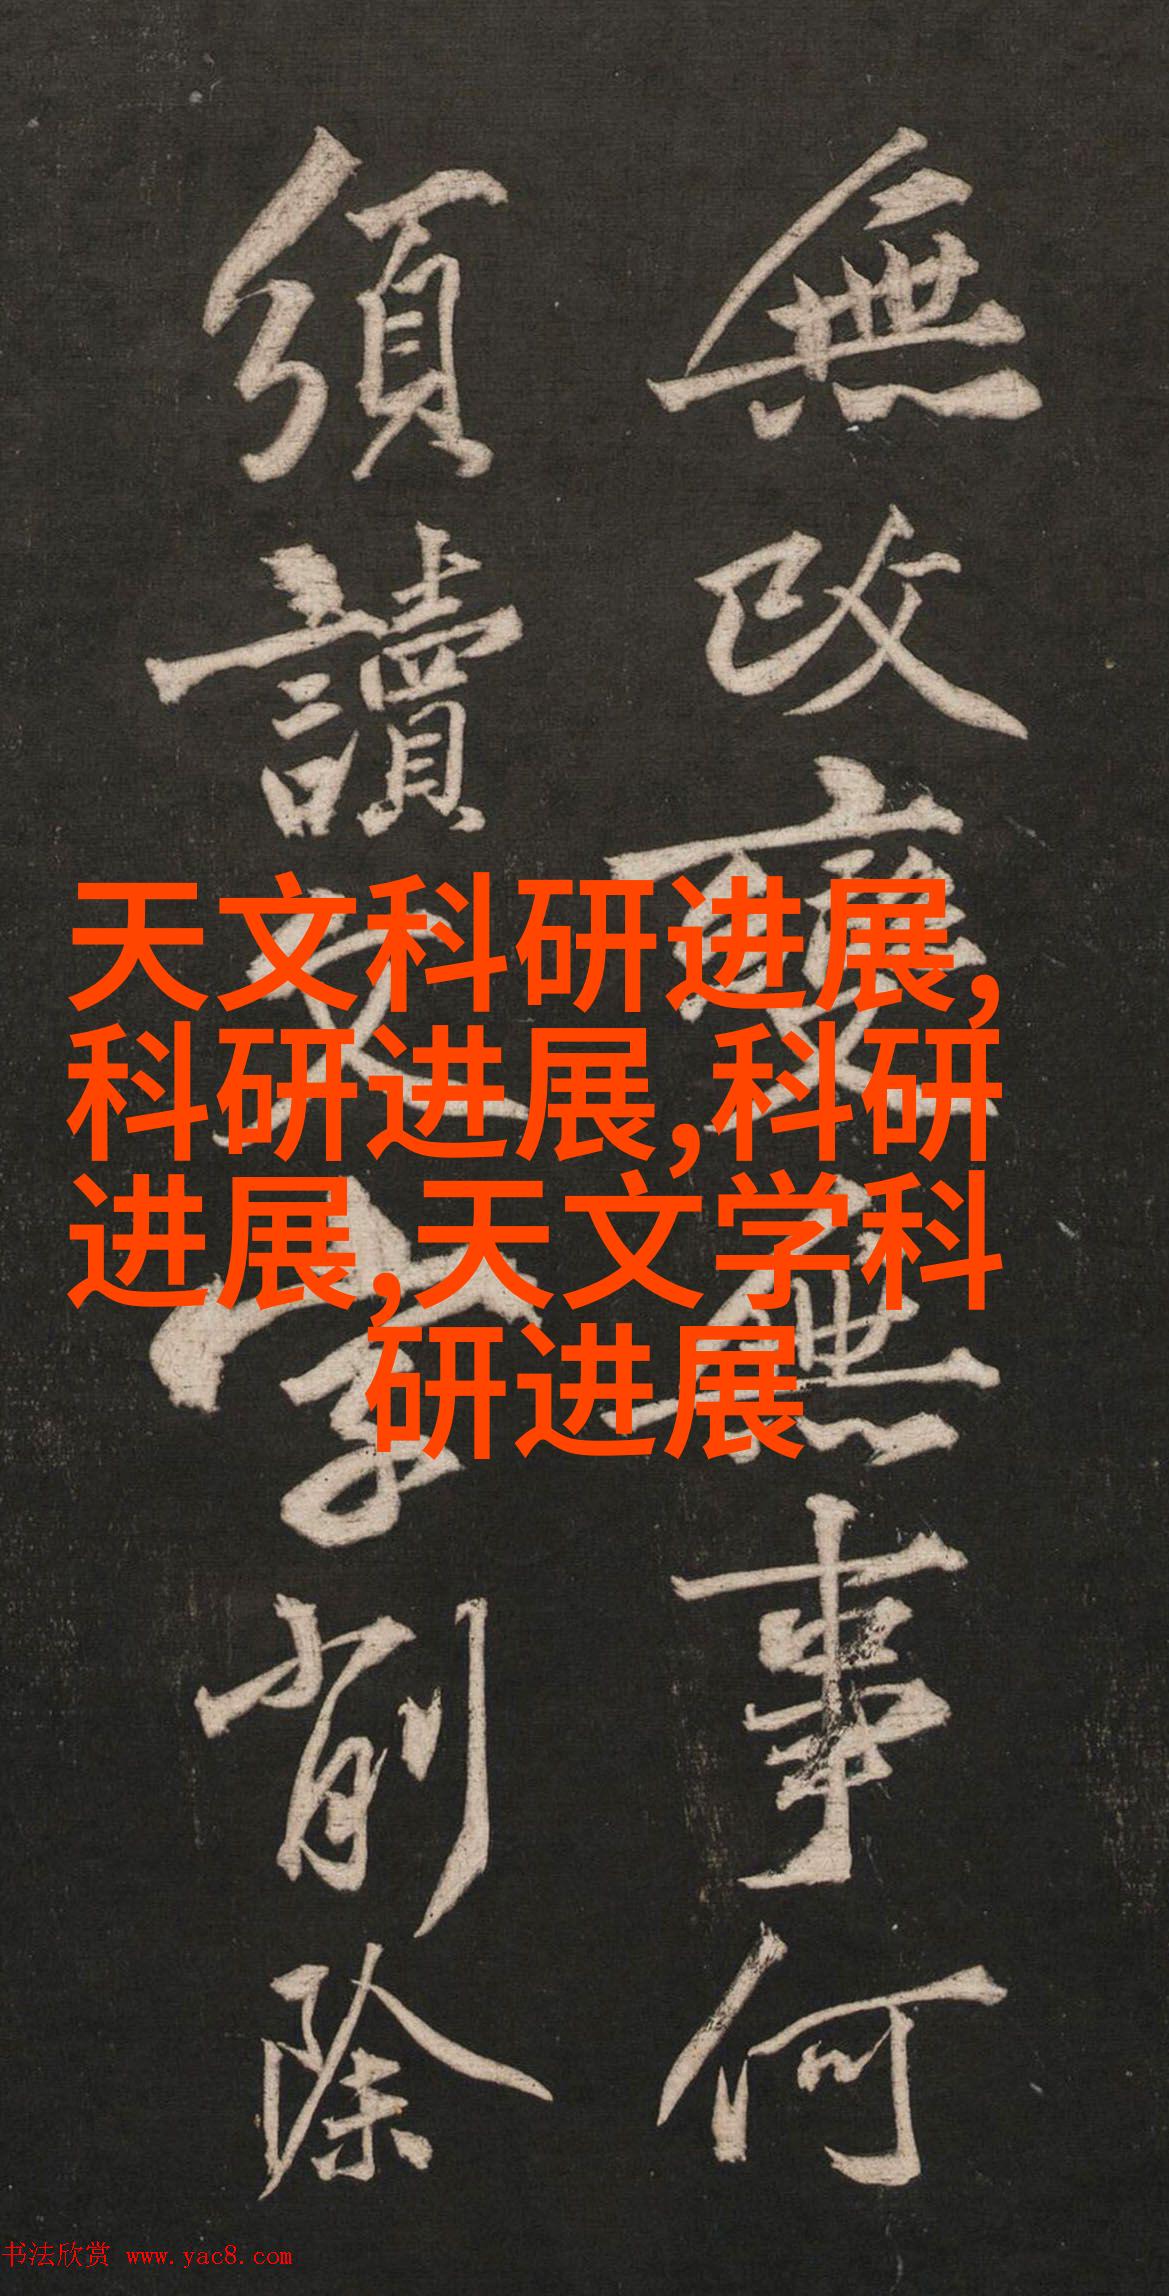 無改變無事何
須讀文字削除
天文科研进展,
科研进展,科研
进展,天文学科
研进展
书法欣赏 www.yac8.com